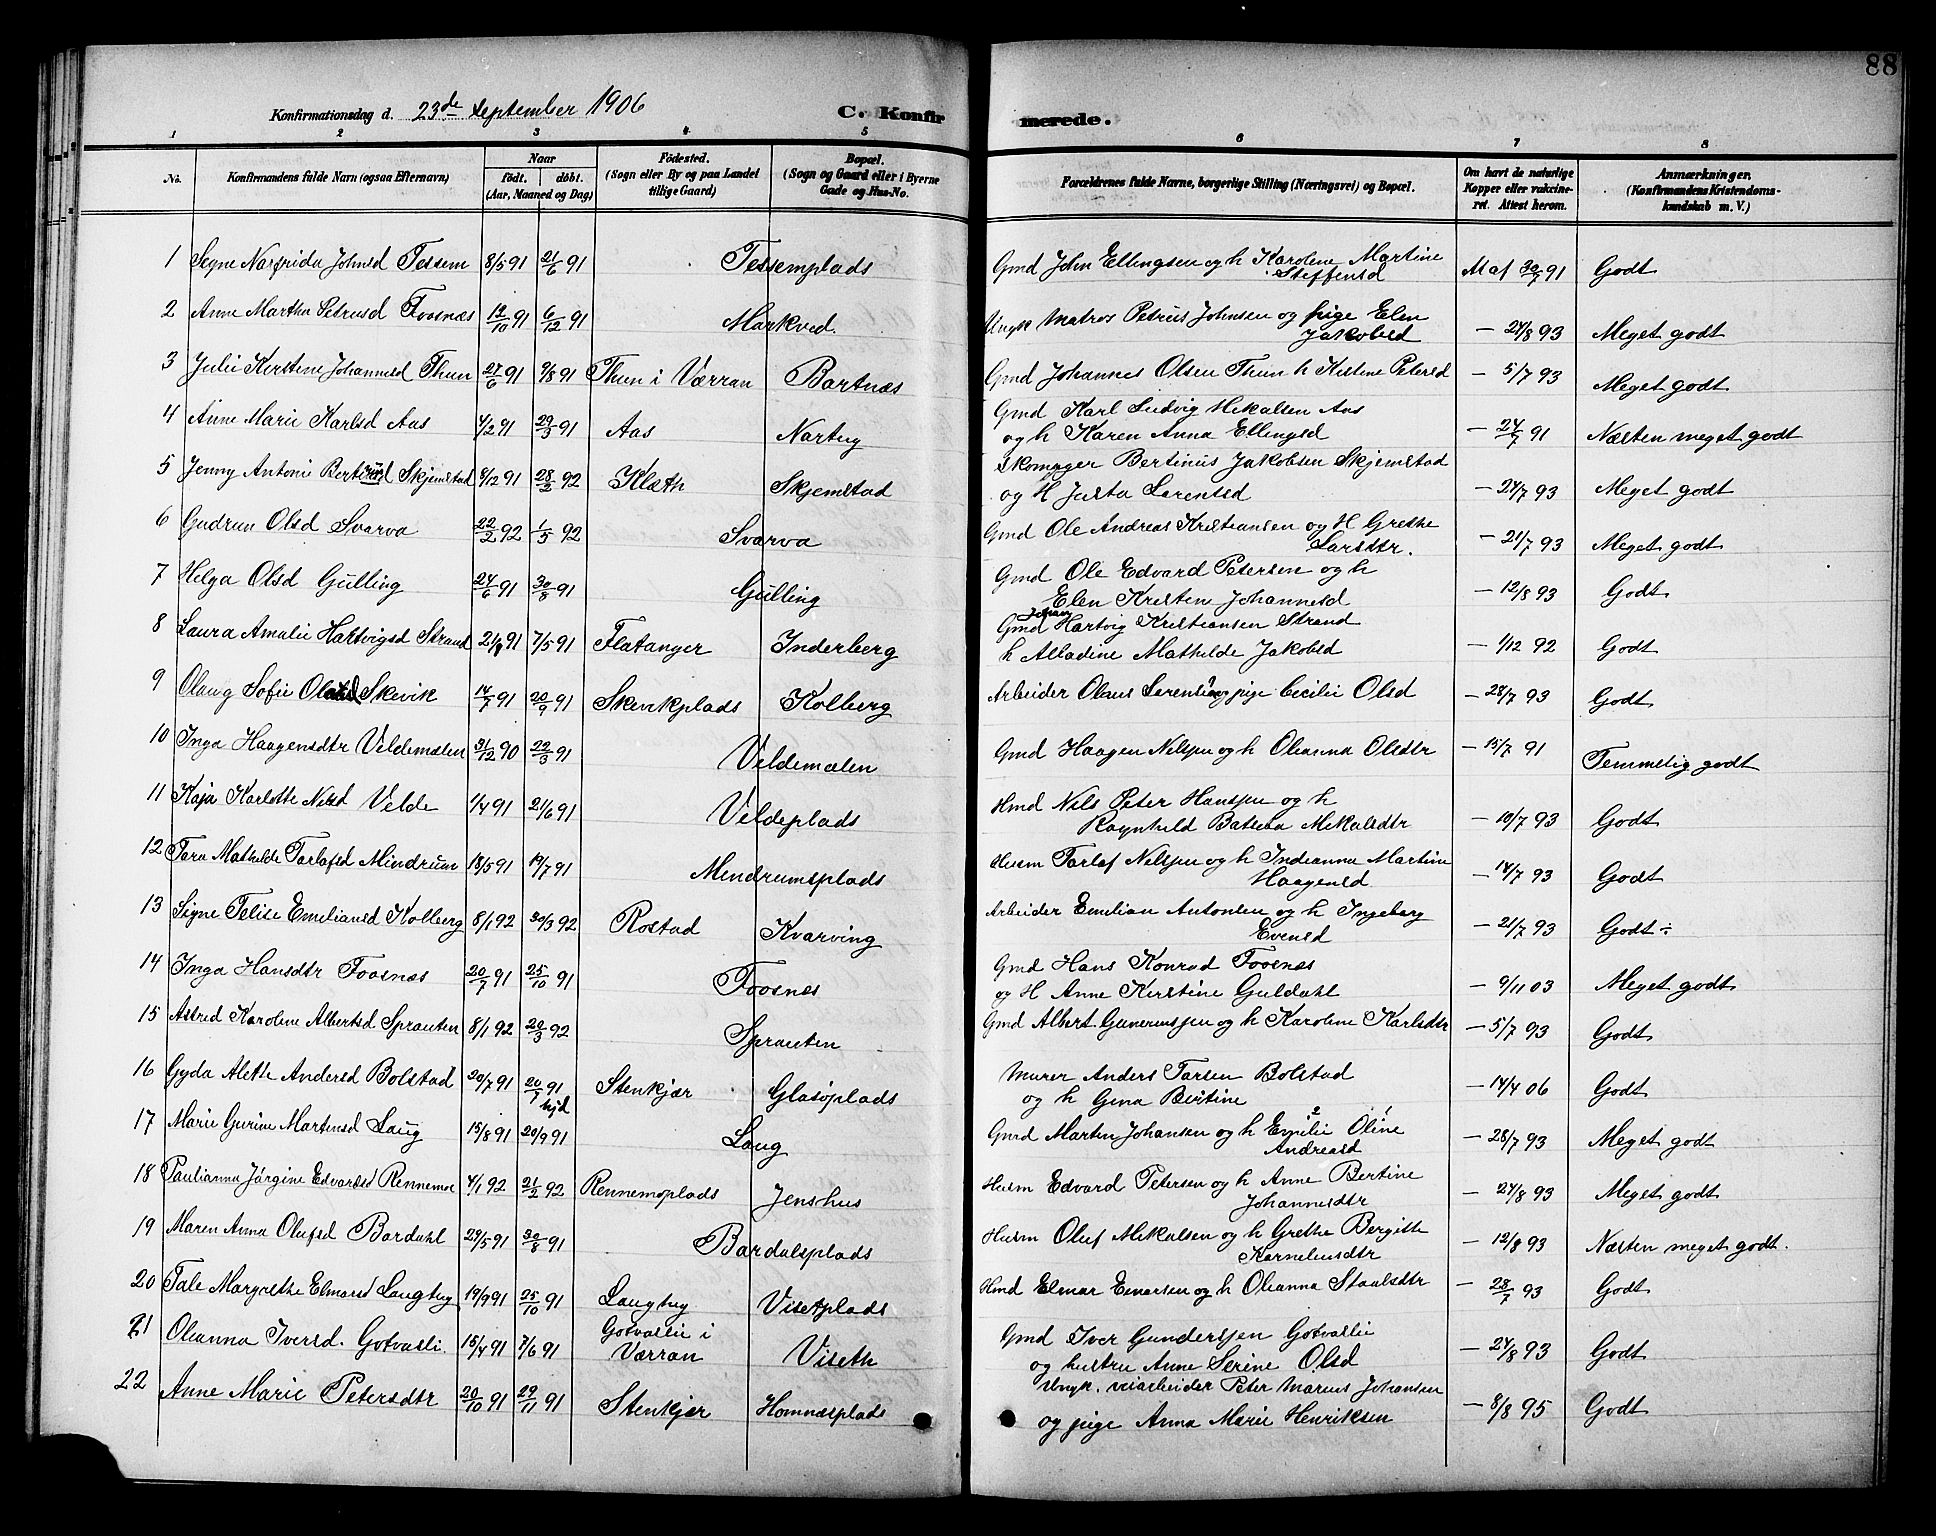 88
Konfirmationsdag d. 23de September 1906 C. Konfirmerede.
1 2 3 4 5 6 7 8
No. Konfirmandens fulde Navn (ogsaa Efternavn) Naar født. døbt. (Aar, Maaned og Dag) Fødested. (Sogn eller By og paa Landet tillige Gaard) Bopæl. (Sogn og Gaard eller i Byerne Gade og Hus-No. Forældrenes fulde Navne, borgerlige Stilling (Næringsvei) og Bopæl. Om havt de naturlige Kopper eller vakcineret. Attest herom. Anmærkninger. (Konfirmandens Kristendomskundskab m. V.)
1 Signe Narfrida Johnsd Tessem 8/5 91 21/6 91 Tessemplads Gmd John Ellingsen og h Karoline Martine Steffensd Maf 30/7 91 Godt
2 Anne Martha Petrusd Fosnæs 12/10 91 6/12 91 Markved. Ungk Matros Petrus Johnsen og pige Elen Jakobsd — 24/8 93 Meget godt
3 Julie Kirstine Johannesd Thun 27/6 91 9/8 91 Thun i Værran Bartnæs Gmd Johannes Olsen Thun h Kirstine Petersd — 5/7 93 Meget godt
4 Anne Marie Karlsd Aas 4/2 91 29/3 91 Aas Nartug Gmd Karl Ludvig Mikalsen Aas
og h Karen Anna Ellingsd — 24/7 91 Næsten meget godt
5 Jenny Antoni Bertinusd Skjemstad 8/12 91 28/2 92 Klæth Skjemstad Skomager Bertinus Jakobsen Skjemstad
og H Justa Serentsd — 24/7 93 Meget godt
6 Gudrun Olsd Svarva 22/2 92 1/5 92 Svarva Gmd Ole Andreas Kristiansen og H Grethe Larsdtr. — 21/7 93 Meget godt
7 Helga Olsd Gulling 24/6 91 30/8 91 Gulling Gmd Ole Edvard Petersen og h
Elen Kristen Johannesd — 12/8 93 Godt
8 Laura Amalie Hartvigsd Strand 21/ 91 7/5 91 Flatanger Inderberg Gmd Johan Hartvig Kristiansen Strand
h Alladine Mathilde Jakobsd — 1/12 92 Godt
9 Olaug Sofie Skevik 14/7 91 20/9 91 Skevikplads Kolberg Arbeider Olaus Serentsen og pige Cecilie Olsd — 28/7 93 Godt
10 Inga Haagensdtr Veldemælen 31/12 90 22/3 91 Veldemælen Gmd Haagen Nilsen og h Olianna Olsdtr — 15/7 91 Temmelig godt
11 Kaja Karlotte Nilsd Velde 1/4 91 21/6 91 Veldeplads Hmd Nils Peter Hansen og h
Ragnhild Batseba Mikalsdtr — 10/7 93 Godt
12 Tora Mathilde Torlafsd Mindrum 18/5 91 19/7 91 Mendrumsplads Husm Torlaf Nilsen og h Indianna Martine Haagensd — 14/7 93 Godt
13 Signe Felise Emeliansd Kolberg 8/1 92 30/3 92 Rostad Kvarving Arbeider Emilian Antonsen og h Ingeborg Evensd — 21/7 93 Godt ÷
14 Inga Hansdtr Fosnæs 20/7 91 25/10 91 Fosnæs Gmd Hans Konrad Fosnæs
og H Anne Kirstine Guldahl — 9/11 03 Meget godt
15 Astrid Karoline Albertsd Sprauten 8/1 92 20/3 92 Sprauten Gmd Albert Gunerussen og h Karoline Karlsdtr — 5/7 93 Godt
16 Gyda Alette Andersd Bolstad 20/7 91 20/7 91 hjd Stenkjær Glasøplads Murer Anders Torsen Bolstad
og h Gina Bertine — 14/4 06 Godt
17 Marie Gurine Martinsd Laug 15/8 91 20/9 91 Laug Gmd Martin Johansen og h Emilie Oline Andreasd — 28/7 93 Meget godt
18 Paulianna Jørgine Edvardsd Rennemo 4/1 92 21/2 92 Rennemoplads Jenshus Husm Edvard Petersen og h Anne Bertine Johannesdtr — 24/8 93 Meget godt
19 Maren Anna Olufsd Bardahl 29/5 91 30/8 91 Bardalsplads Husm Oluf Mikalsen og h Grethe Bergitte Korneliusdtr — 12/8 93 Næsten meget godt.
20 Tale Margrethe Elmarsd Langhug 19/9 91 25/10 91 Langhug Visetplads Hmd Elmar Einarsen og h Olianna Staalsdtr — 28/7 93 Godt
21 Olianna Iversd. Gotvasli. 15/4 91 7/6 91 Gotvaslie i Værran Viseth Gmd Iver Gundersen Gotvaslie
og hustru Anne Serine Olsd — 24/8 93 Godt
22 Anne Marie Petersdtr 20/10 91 29/11 91 Stenkjer Homnæsplads Ungk. veiarbeider Peter Marius Johansen
og pige Anna Marie Henriksen — 8/8 95 Godt